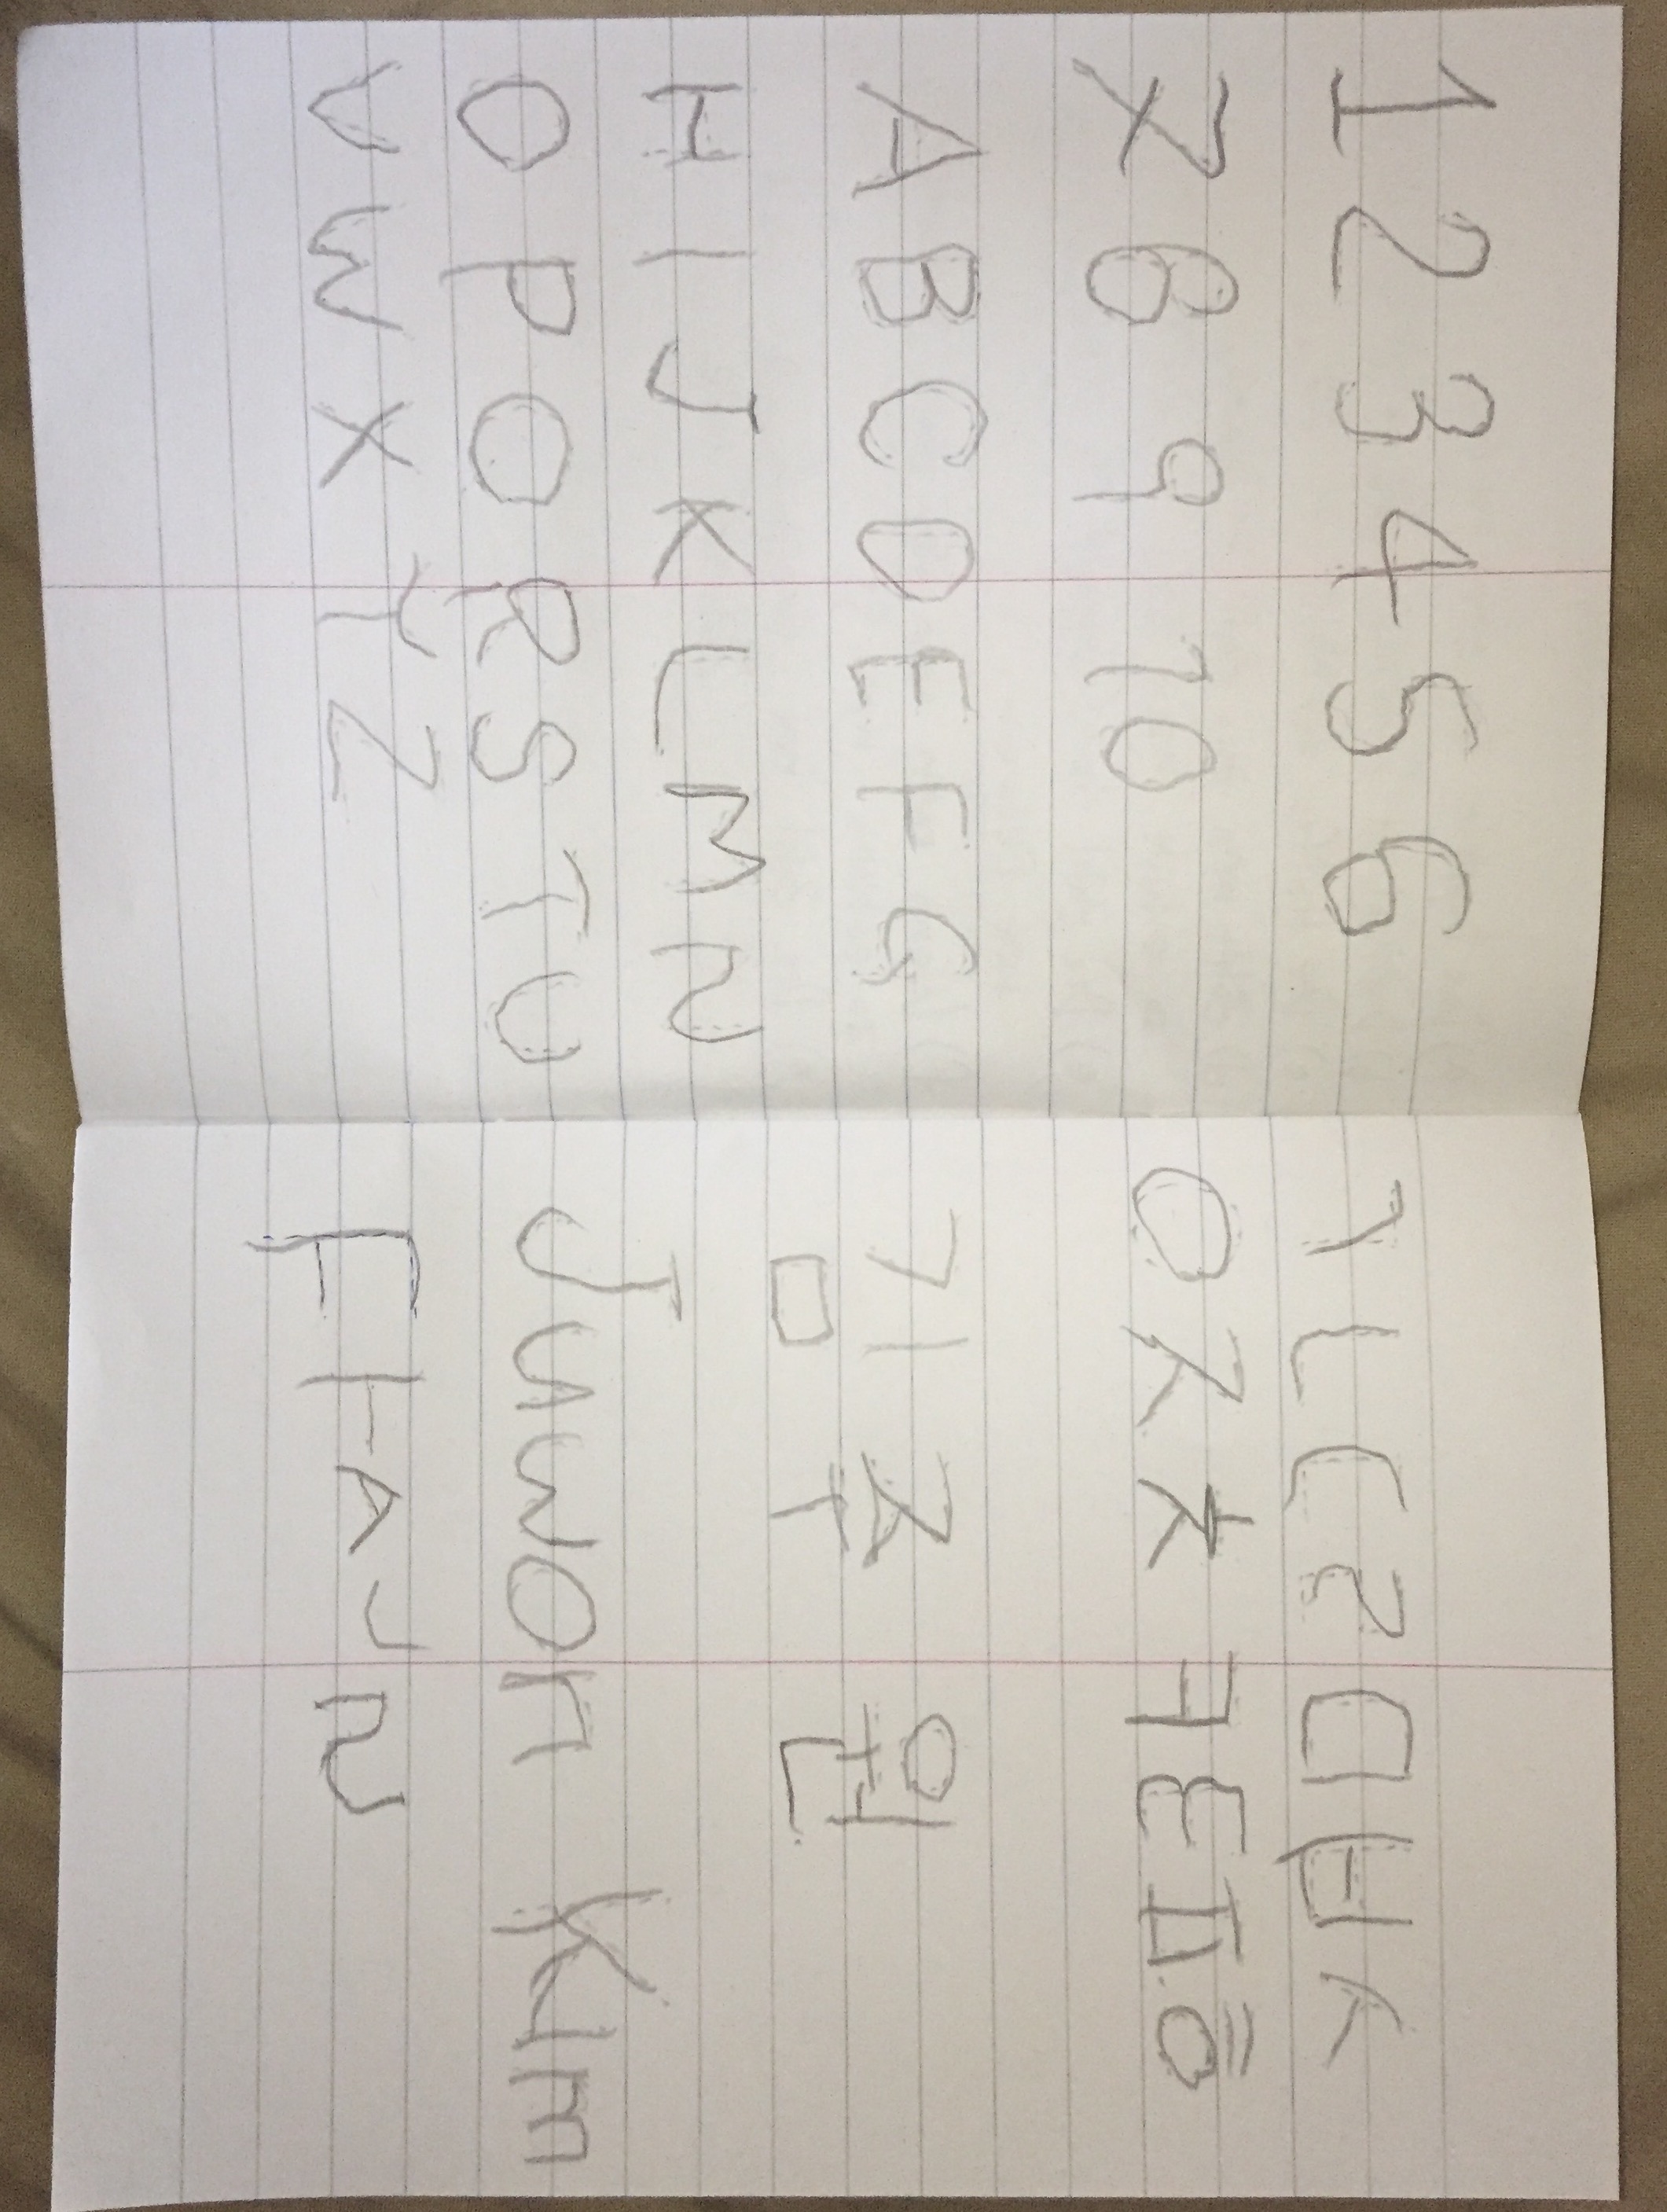 1 2 3 4 5 6
7 8 9 10
A B C D E F G
H I J K L M N
O P O R S T U
V W X Y Z
ㄱ ㄴ ㄷ ㄹ ㅁ ㅂ ㅅ
ㅇ ㅈ ㅊ ㅋ ㅌ ㅍ ㅎ
김 주 원
Juwon Kim